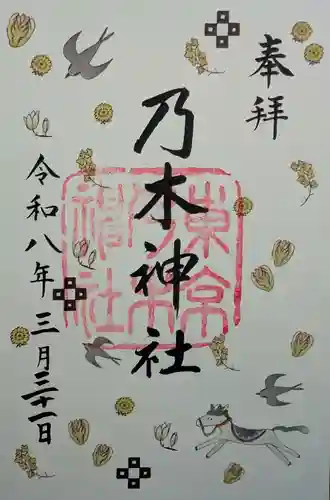 奉拝
乃木神社
令和八年三月三十一日
東京
乃木
神社